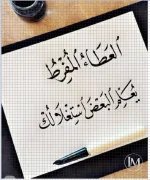 العطاءُ المُفرِطُ
يُعلِّمُ البعضَ استغلالَكَ